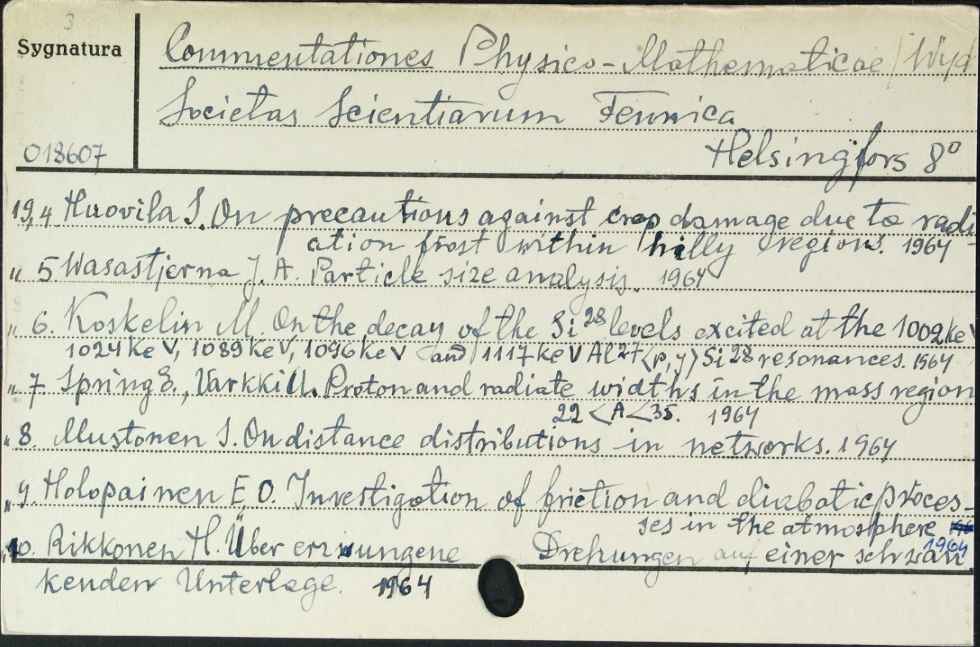 3
Sygnatura
Commentationes Physico-Mathematicae / Wyd
Societas Scientiarum Fennica
018607
Helsingfors 8°
19,4 Huovila S. On precautions against crop damage due to radi
ation frost within hilly regions. 1964
" 5. Wasastjerna J. A. Particle size analysis. 1964
" 6. Koskelin M. On the decay of the Si 28 levels excited at the 1002 keV
1024 KeV, 1089 KeV, 1096 KeV and 1117 KeV Al 27 (p,y) Si 28 resonances. 1964
" 7. Spring E., Varkki U. Proton and radiate widths in the mass region
22 < A < 35. 1964
" 8. Mustonen S. On distance distributions in networks. 1964
" 9. Holopainen E O. Investigation of friction and diabatic proces-
ses in the atmosphere 1964
" 10. Rikkonen H. Über erzwungene Drehungen auf einer schwan
kenden Unterlage. 1964